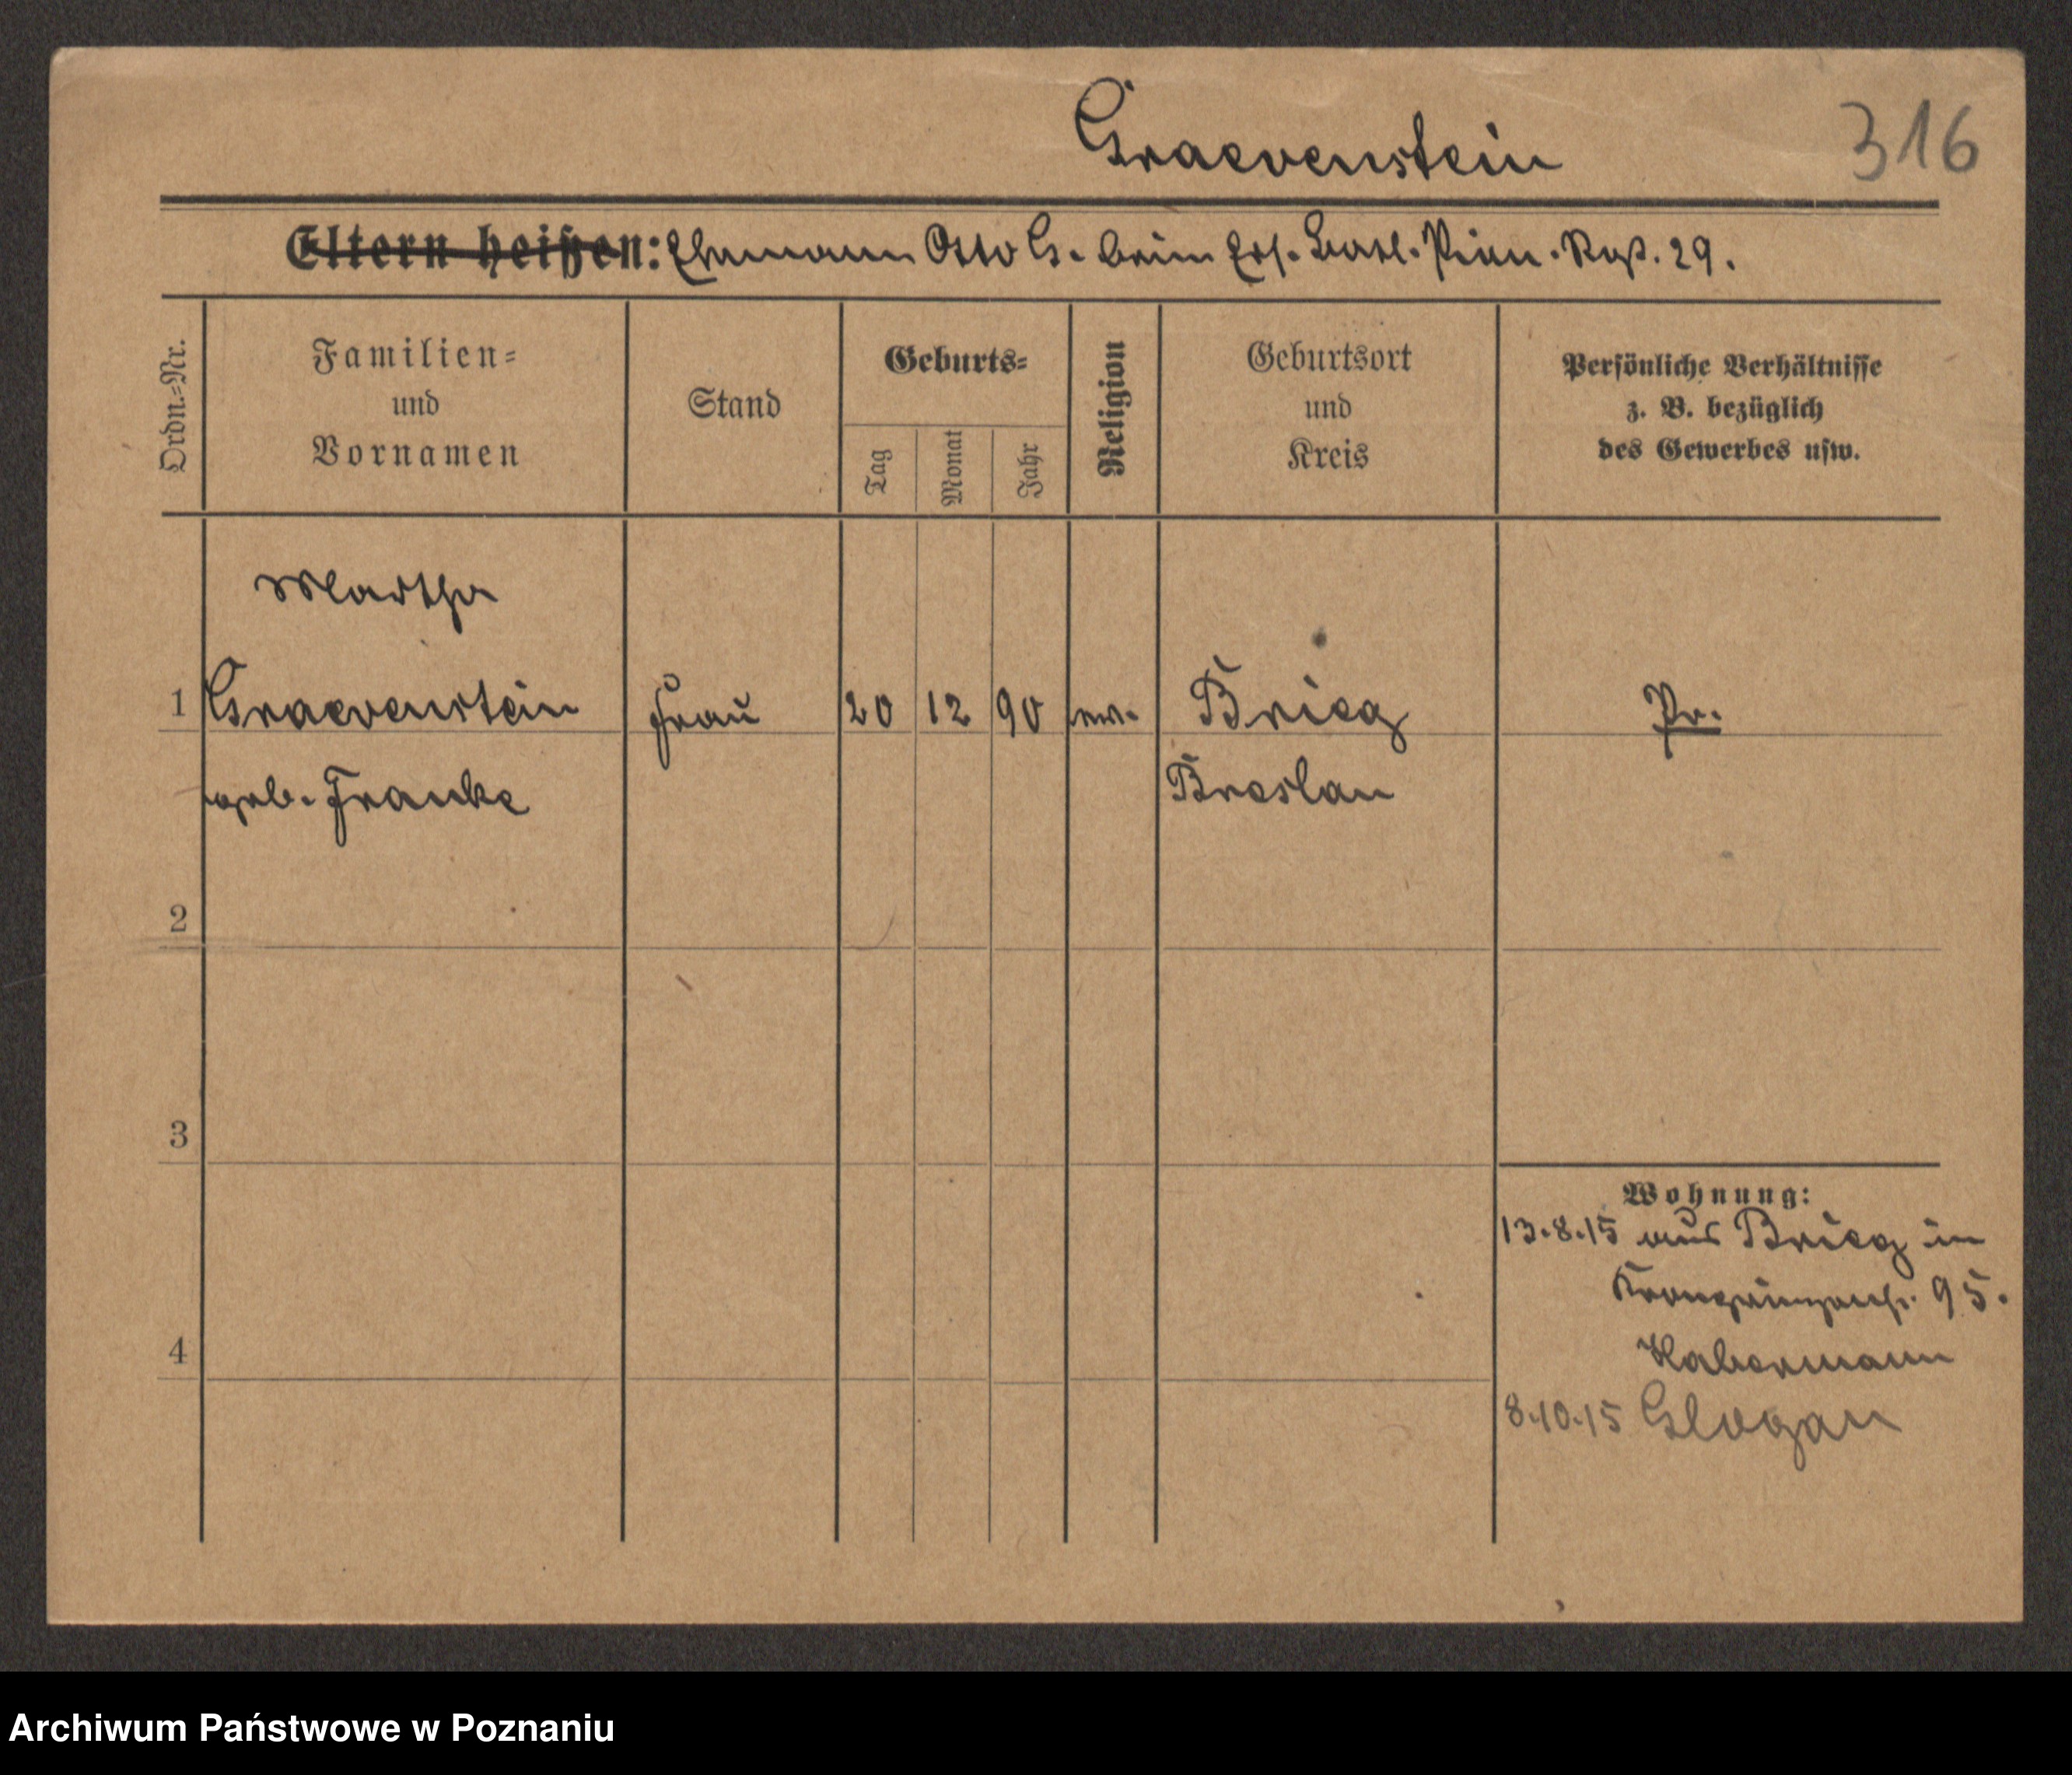 Graevenstein
316
Eltern heißen: Ehemann Otto G. beim Ers. Batl. Pion. Rgt. 29.
Ordn.=Nr.
Familien=
und
Vornamen
Stand
Geburts=
Tag
Monat
Jahr
Religion
Geburtsort
und
Kreis
Persönliche Verhältnisse
z. B. bezüglich
des Gewerbes usw.
Martha
1 Graevenstein Frau 20 12 90 ev. Brieg Pr.
geb. Franke Breslau
2
3
Wohnung:
13.8.15 aus Brieg in
Kronprinzenst. 95.
Habermann
4
8.10.15 Glogau
Archiwum Państwowe w Poznaniu